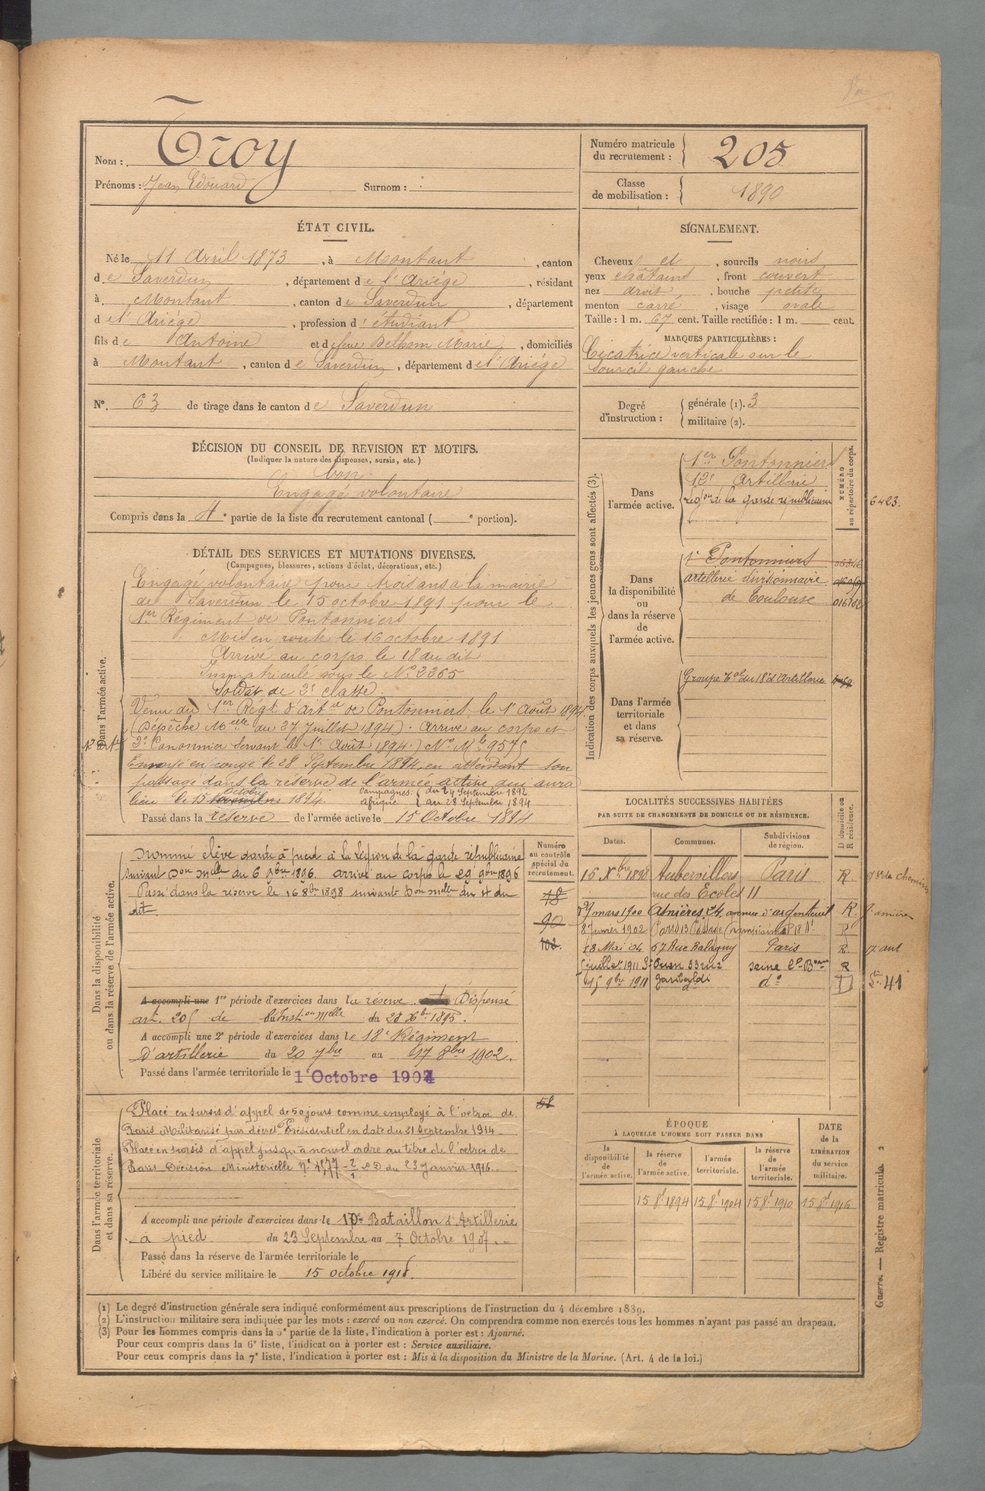 Nom : Troy
Prénoms : Jean Edouard Surnom :
Numéro matricule du recrutement : 205
Classe de mobilisation : 1890
ÉTAT CIVIL.
Né le 11 Avril 1873, à Montaut, canton
de Saverdun, département de l'Ariège, résidant
à Montaut, canton de Saverdun, département
de l'Ariège, profession d'étudiant
fils de Antoine et de feue Belhom Marie, domiciliés
à Montaut, canton de Saverdun, département de l'Ariège
N° 63 de tirage dans le canton de Saverdun
SIGNALEMENT.
Cheveux et, sourcils noirs
yeux châtains, front couvert
nez droit, bouche petite
menton carré, visage ovale
Taille : 1 m. 67 cent. Taille rectifiée : 1 m. cent.
MARQUES PARTICULIÈRES :
Cicatrice verticale sur le
sourcil gauche
Degré d'instruction : générale (1). 3
militaire (2).
DÉCISION DU CONSEIL DE REVISION ET MOTIFS.
(Indiquer la nature des dispenses, sursis, etc.)
bon
Engagé volontaire
Compris dans la 4e partie de la liste du recrutement cantonal ( e portion).
DÉTAIL DES SERVICES ET MUTATIONS DIVERSES.
(Campagnes, blessures, actions d'éclat, décorations, etc.)
Dans l'armée active.
Engagé volontaire pour trois ans à la mairie
de Saverdun le 15 octobre 1891 pour le
1er Régiment de Pontonniers
Mis en route le 16 octobre 1891
Arrivé au corps le 18 du dit
Immatriculé sous le N° 2265
Soldat de 2e classe.
Venu au 1er Régt d'Artie de Pontonniers le 1er Août 1894
(Dépêche Melle du 27 Juillet 1894). Arrivé au corps et
2e Canonnier Servant le 1er Août 1894.) N° Mle 9575
Envoyé en congé le 28 Septembre 1894, en attendant son
passage dans la réserve de l'armée active qui aura
lieu le 15 octobre 1894.
Campagnes afrique du 24 Septembre 1892
au 28 Septembre 1894
Passé dans la réserve de l'armée active le 15 Octobre 1894
Indication des corps auxquels les jeunes gens sont affectés (3).
Dans l'armée active.
1er Pontonniers
12e Artillerie
Légion de la garde républicaine
NUMÉRO au répertoire du corps.
6423.
Dans la disponibilité ou dans la réserve de l'armée active.
1er Pontonniers
artillerie divisionnaire
de Toulouse
Dans l'armée territoriale et dans sa réserve.
Groupe tal du 18e d'Artillerie
Dans la disponibilité ou dans la réserve de l'armée active.
Nommé élève garde à pied à la légion de la garde républicaine
suivant Don melle du 6 9bre 1896. arrivé au corps le 29 9bre 1896
Passé dans la réserve le 16 8bre 1898 suivant Don melle du 4 du
dit.
Numéro au contrôle spécial du recrutement.
18
90
A accompli une 1re période d'exercices dans la réserve. Dispensé
art. 205 de l'Inston Melle du 28 Xbre 1895.
A accompli une 2e période d'exercices dans le 18e Régiment
D'artillerie du 20 7bre au 17 8bre 1902.
Passé dans l'armée territoriale le 1er Octobre 1904
LOCALITÉS SUCCESSIVES HABITÉES
PAR SUITE DE CHANGEMENTS DE DOMICILE OU DE RÉSIDENCE.
Dates. Communes. Subdivisions de région. D domicile ou R résidence.
15 Xbre 1898 Aubervilliers Paris R
rue des Ecoles 11
27 mars 1900 Asnières, 24, avenue d'argenteuil R
8 février 1902
18 Mai 04 57 Rue Balagny Paris R
juillet 1911 St Ouen seine 2e Beau R
15 9bre 1911 Garibaldi do D
41
Dans l'armée territoriale et dans sa réserve.
Placé en sursis d'appel de 50 jours comme employé à l'octroi de
Paris Militarisé par décret Présidentiel en date du 21 Septembre 1914.
Placé en sursis d'appel jusqu'à nouvel ordre au titre de l'octroi de
Paris Décision Ministerielle N° 1577 du 23 Janvier 1916.
A accompli une période d'exercices dans le 10e Bataillon d'Artillerie
à pied du 23 Septembre au 7 Octobre 1907.
Passé dans la réserve de l'armée territoriale le
Libéré du service militaire le 15 octobre 1918.
ÉPOQUE
À LAQUELLE L'HOMME DOIT PASSER DANS
la disponibilité de l'armée active. la réserve de l'armée active. l'armée territoriale. la réserve de l'armée territoriale.
DATE de la LIBÉRATION du service militaire.
15 8e 1894 15 8e 1904 15 8e 1910 15 8e 1916
Guerre. — Registre matricule. 2
(1) Le degré d'instruction générale sera indiqué conformément aux prescriptions de l'instruction du 4 décembre 1889.
(2) L'instruction militaire sera indiquée par les mots : exercé ou non exercé. On comprendra comme non exercés tous les hommes n'ayant pas passé au drapeau.
(3) Pour les hommes compris dans la 5e partie de la liste, l'indication à porter est : Ajourné.
Pour ceux compris dans la 6e liste, l'indication à porter est : Service auxiliaire.
Pour ceux compris dans la 7e liste, l'indication à porter est : Mis à la disposition du Ministre de la Marine. (Art. 4 de la loi.)